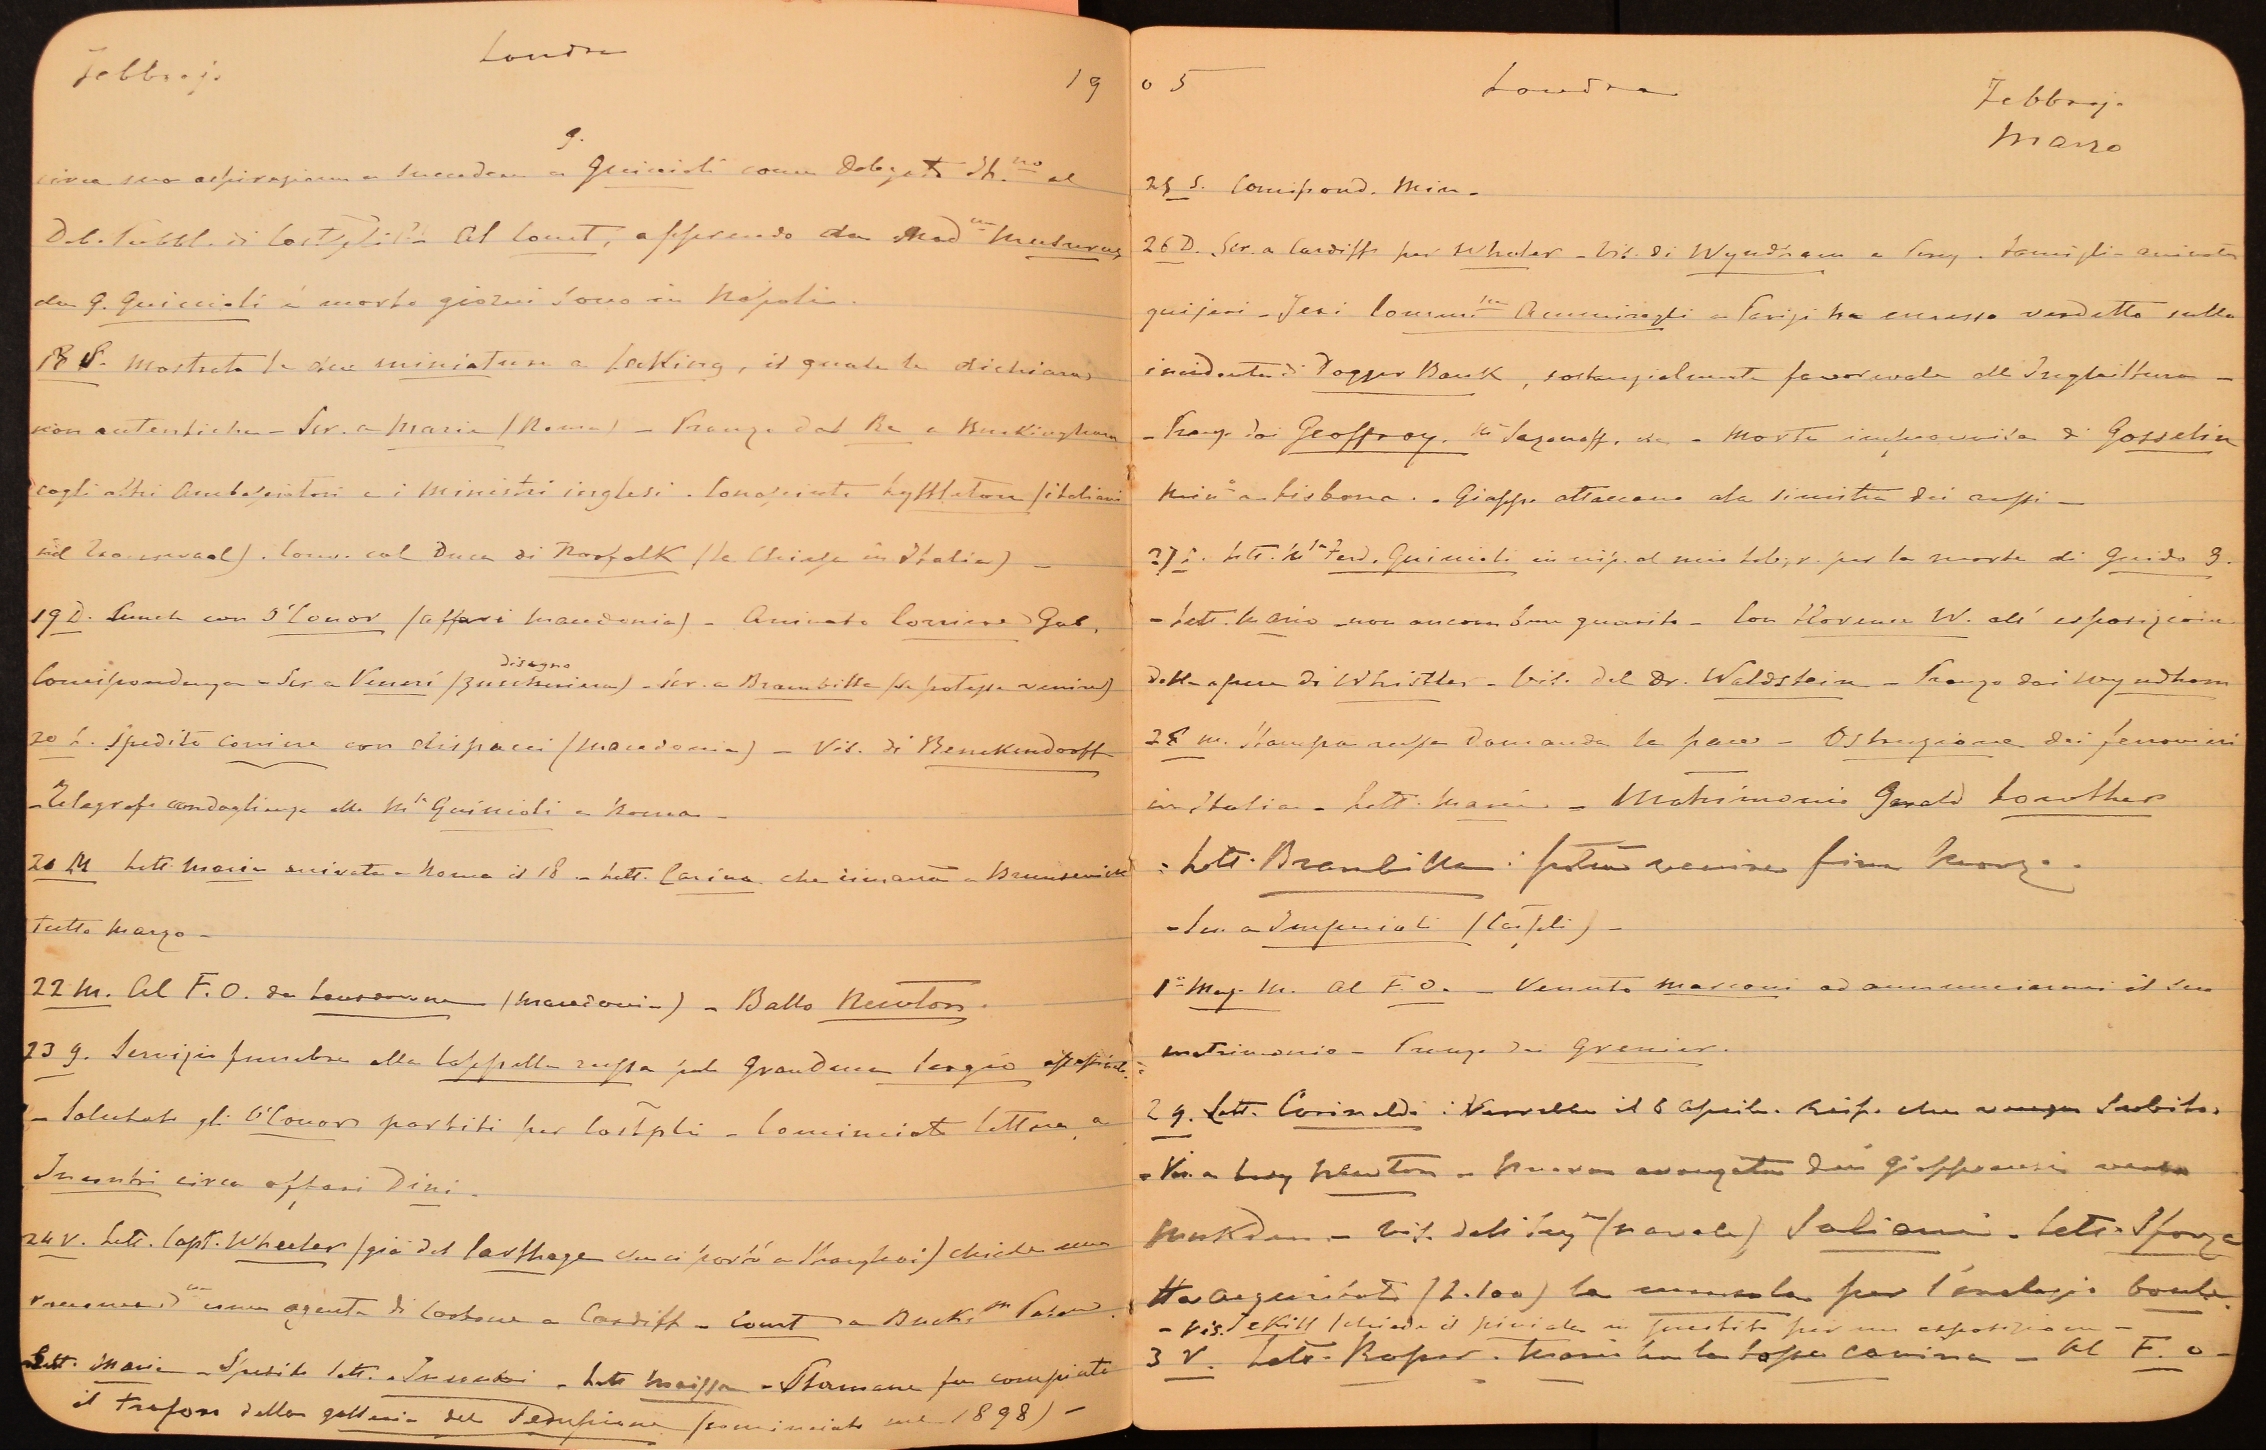 Febbraj.
Londra
19
g.
circa sua aspirazione a succedere a Guiccioli come Delegato It.no al
Deb. Pubbl. di Costpli. Al Court, apprendo da Mad.me Musurus
che G. Guiccioli è morto giorni sono in Napoli.
18 S. Mostrate le due miniature a LaKing, il quale le dichiara
non autentiche - Scr. a Maria (Roma) - Pranzo dal Re a Buckingham
cogli altri Ambasciatori e i Ministri inglesi. Conosciuto Lyttleton (italiani
nel Transvaal). Conv. col Duca di Norfolk (le Chiese in Italia) -
19 D. Lunch con O'Conor (affari Macedonia) - Arrivato Corriere Gab.
Corrispondenza - Scr. a Venini (disegno zuccheriera) - Scr. a Brambilla (se potesse venire)
20 L. Spedito corriere con dispacci (Macedonia) - Vis. di Benckendorff
- Telegrafo condoglianze alla M.sa Guiccioli a Roma -
21 M Lett. Maria arrivata a Roma il 18 - Lett. Carina che rimarrà a Brunswick
tutto Marzo -
22 M. Al F.O. da Lansdowne (Macedonia) - Ballo Newton.
23 g. Servizio funebre alla Cappella russa pel Granduca Sergio assassinato.
- Salutati gli O'Conor partiti per Costpli - Cominciata lettera a
circa affari Dini.
24 V. Lett. Capt. Wheeler (già del Carthage che ci portò a Shanghai) chiede una
raccomand.ne come agente di carbone a Cardiff - Court a Buck.m Palace.
Lett. Maria - Spedita lett. - Lett. - Stamane fu compiuto
il traforo della galleria del Sempione (cominciato nel 1898) -
05
Londra
Febbraj.
Marzo
25 S. Corrispond. Min -
26 D. Scr. a Cardiff per Wheeler - Vis. di Wyndham e famiglia arrivati
qui jeri - Jeri Commis.ne Ammiragli a Parigi ha emesso verdetto sullo
incidente di Dogger Bank, sostanzialmente favorevole all'Inghilterra -
- Pranzo dai Geoffroy. Sazonoff, - Morte improvvisa di Gosselin
Min.o a Lisbona. - Giapp. attaccano ala sinistra dei russi -
27 L. Lett. M.sa Ferd. Guiccioli in risp. al mio telegr. per la morte di Guido G.
- Lett. Mario non ancora ben guarito - Con Florence W. all'esposizione
delle opere di Whistler - Vis. del Dr. Waldstein - Pranzo dai Wyndham
28 M. Stampa russa domanda la pace - Ostruzione dei ferrovieri
in Italia - Lett. Maria - Matrimonio Gerald Lowther
- Lett. Brambilla: potrà venire fine Marzo.
- Scr. a Imperiali (Costpli) -
1° Marz. M. Al F.O. - Venuto Marconi ad annunciarmi il suo
matrimonio - Pranzo da Grenier.
2 g. Lett. Corinaldi: Verrebbe il 8 aprile. Risp. che venga subito.
- Vis. a Lady Newton - Nuova avanzata dei Giapponesi verso
Mukden - Vis. dell'Ing.re (navale) Saliani - Lett. Sforza
Ha acquistato (L. 100) la mensola per l'orologio boule.
- Vis. Jekill (chiede il piviale in prestito per un esposizione -
3 V. Lett. Roper. Mario ha la tosse canina - Al F.O -